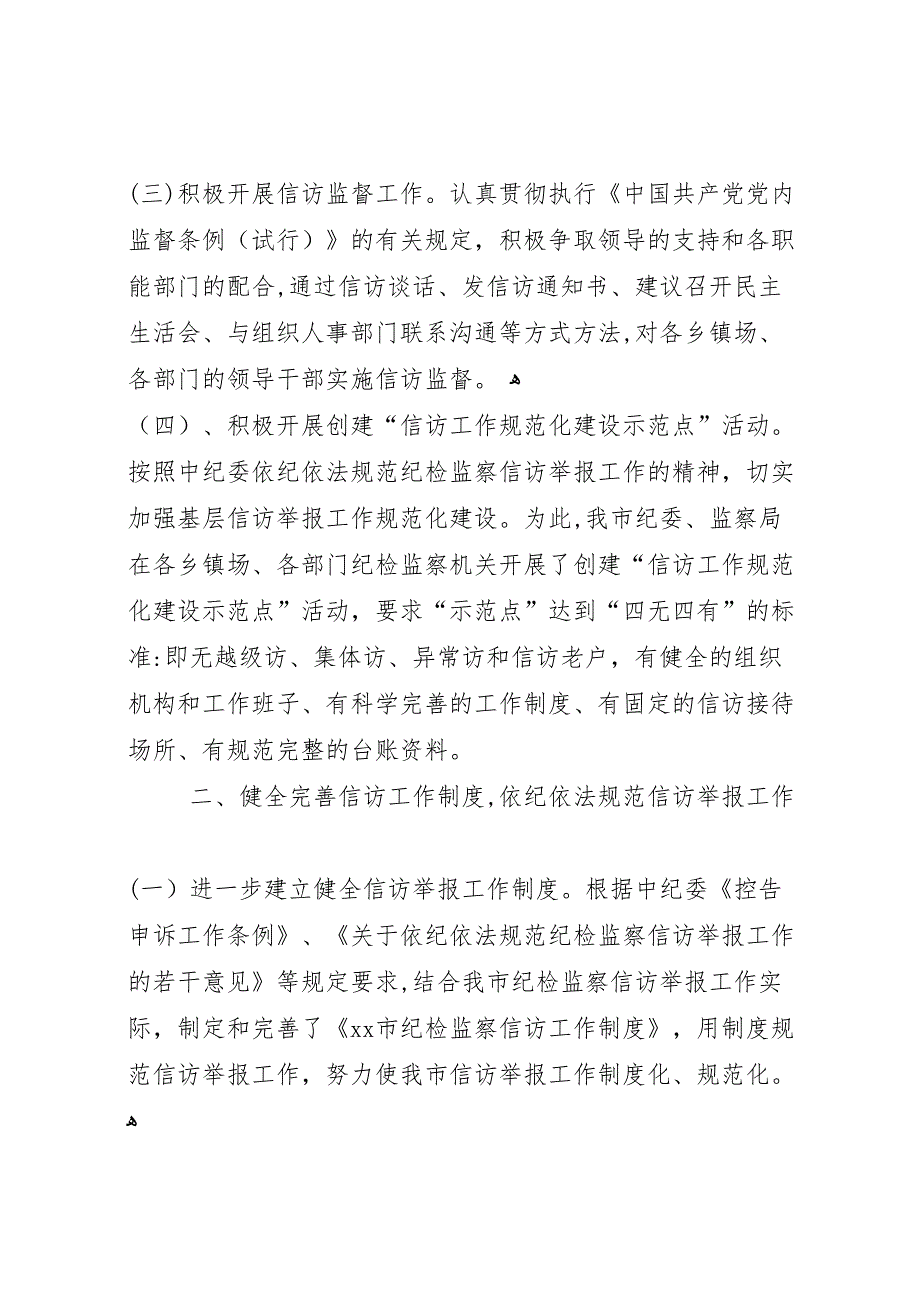 (三)积极开展信访监督工作。认真贯彻执行《中国共产党党内
监督条例（试行）》的有关规定，积极争取领导的支持和各职
能部门的配合,通过信访谈话、发信访通知书、建议召开民主
生活会、与组织人事部门联系沟通等方式方法,对各乡镇场、
各部门的领导干部实施信访监督。 ﻫ
（四）、积极开展创建“信访工作规范化建设示范点”活动。
按照中纪委依纪依法规范纪检监察信访举报工作的精神，切实
加强基层信访举报工作规范化建设。为此,我市纪委、监察局
在各乡镇场、各部门纪检监察机关开展了创建“信访工作规范
化建设示范点”活动，要求“示范点”达到“四无四有”的标
准:即无越级访、集体访、异常访和信访老户，有健全的组织
机构和工作班子、有科学完善的工作制度、有固定的信访接待
场所、有规范完整的台账资料。
二、健全完善信访工作制度,依纪依法规范信访举报工作
(一）进一步建立健全信访举报工作制度。根据中纪委《控告
申诉工作条例》、《关于依纪依法规范纪检监察信访举报工作
的若干意见》等规定要求,结合我市纪检监察信访举报工作实
际，制定和完善了《xx市纪检监察信访工作制度》，用制度规
范信访举报工作，努力使我市信访举报工作制度化、规范化。
ﻫ